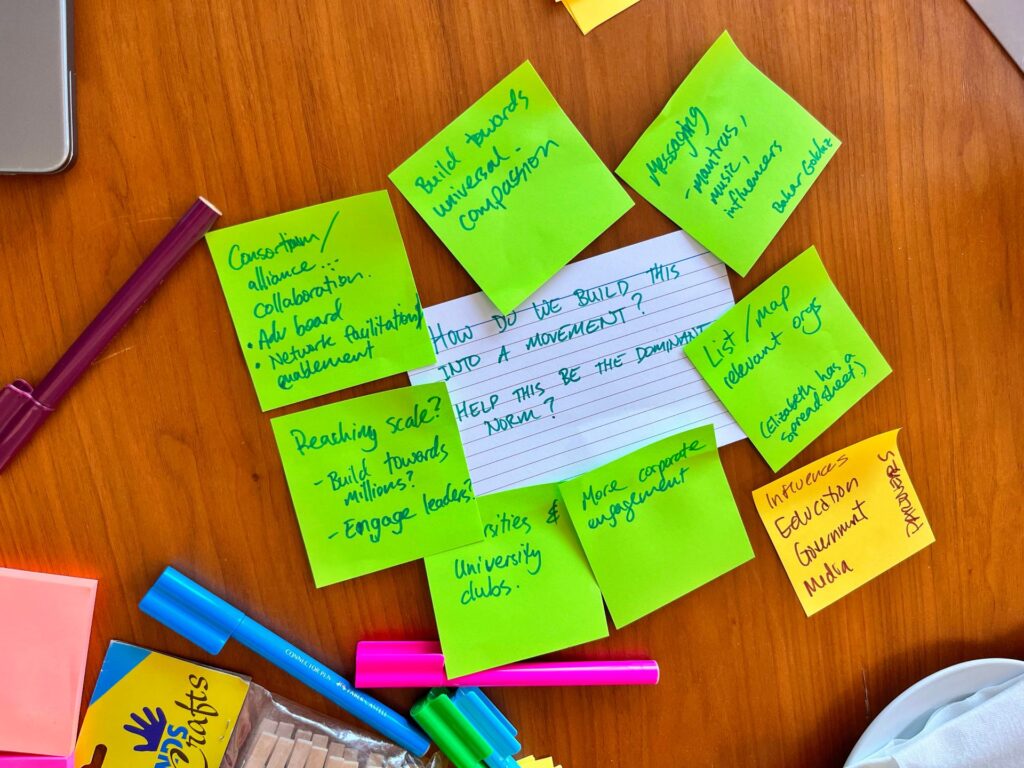 HOW DO WE BUILD THIS
INTO A MOVEMENT?
HELP THIS BE THE DOMINANT
NORM?
Build towards
universal
compassion
Messaging
- mantras,
music,
influencers
Consortium/
alliance...
collaboration.
• Adv board
• Network facilitation/
enablement
List/map
relevant orgs
(Elizabeth has a
spreadsheet)
Reaching scale?
- Build towards
millions?
- Engage leaders?
&
University
clubs.
More corporate
engagement
Influences
Education
Government
Media
CONNECTOR PEN
Crafts